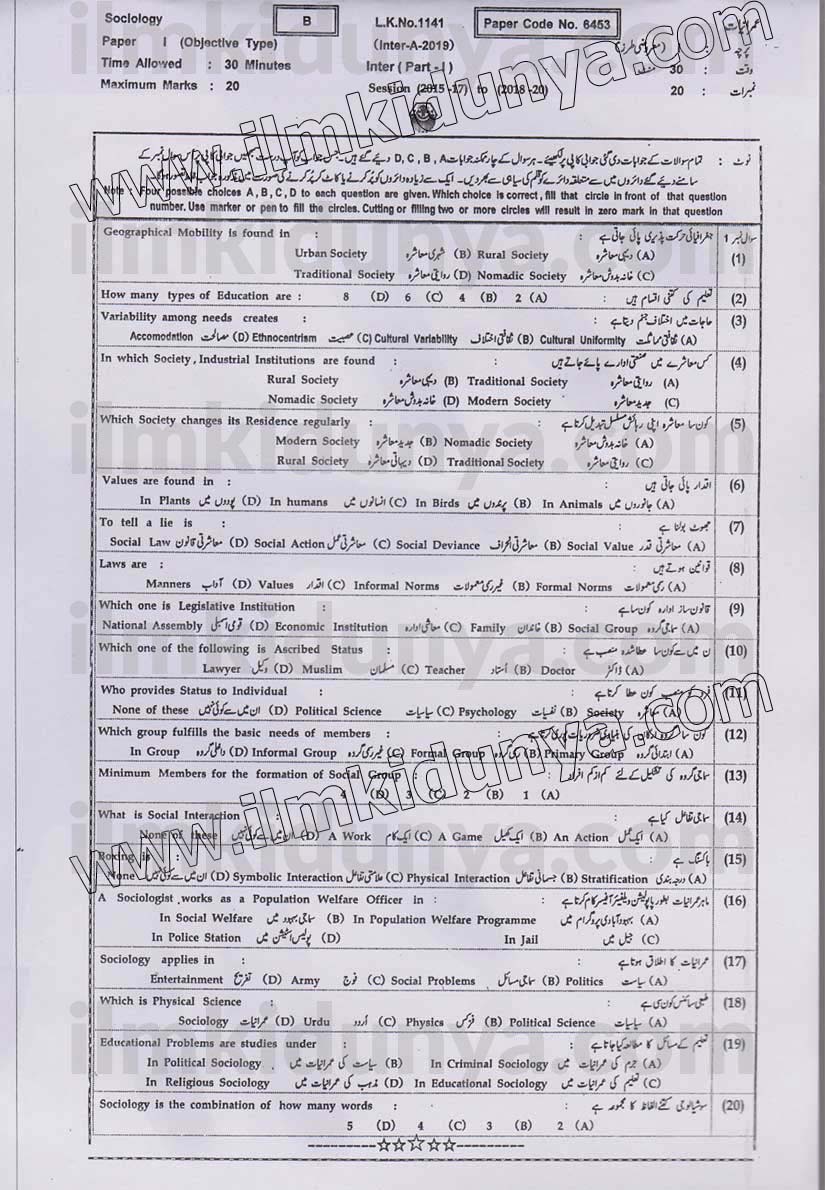 Sociology B L.K.No.1141 Paper Code No. 6453 عمرانیات
Paper I (Objective Type) (Inter-A-2019) (معروضی طرز) I پرچہ :
Time Allowed : 30 Minutes Inter (Part-I) 30 منٹ وقت :
Maximum Marks : 20 Session (2015-17) to (2018-20) 20 نمبرات :
نوٹ : تمام سوالات کے جوابات دی گئی جوابی کاپی پر لکھیئے۔ ہر سوال کے چار ممکنہ جوابات D, C, B, A دیے گئے ہیں۔ جس جواب کو آپ درست سمجھیں جوابی کاپی پر اس سوال نمبر کے
سامنے دیئے گئے دائروں میں سے متعلقہ دائرے کو قلم کی سیاہی سے بھر دیں۔ ایک سے زیادہ دائروں کو پُر کرنے یا کاٹ کر پُر کرنے کی صورت میں
Note : Four possible choices A, B, C, D to each question are given. Which choice is correct, fill that circle in front of that question
number. Use marker or pen to fill the circles. Cutting or filling two or more circles will result in zero mark in that question
سوال نمبر 1
Geographical Mobility is found in : جغرافیائی حرکت پذیری پائی جاتی ہے (1)
Urban Society شہری معاشرہ (B) Rural Society دیہی معاشرہ (A)
Traditional Society روایتی معاشرہ (D) Nomadic Society خانہ بدوش معاشرہ (C)
How many types of Education are : 8 (D) 6 (C) 4 (B) 2 (A) تعلیم کی کتنی اقسام ہیں (2)
Variability among needs creates : حاجات میں اختلاف جنم دیتا ہے (3)
Accomodation مصالحت (D) Ethnocentrism عصبیت (C) Cultural Variability ثقافتی اختلاف (B) Cultural Uniformity ثقافتی مماثلت (A)
In which Society, Industrial Institutions are found : کس معاشرے میں صنعتی ادارے پائے جاتے ہیں (4)
Rural Society دیہی معاشرہ (B) Traditional Society روایتی معاشرہ (A)
Nomadic Society خانہ بدوش معاشرہ (D) Modern Society جدید معاشرہ (C)
Which Society changes its Residence regularly : کون سا معاشرہ اپنی رہائش مسلسل تبدیل کرتا ہے (5)
Modern Society جدید معاشرہ (B) Nomadic Society خانہ بدوش معاشرہ (A)
Rural Society دیہاتی معاشرہ (D) Traditional Society روایتی معاشرہ (C)
Values are found in : اقدار پائی جاتی ہیں (6)
In Plants پودوں میں (D) In humans انسانوں میں (C) In Birds پرندوں میں (B) In Animals جانوروں میں (A)
To tell a lie is : جھوٹ بولنا ہے (7)
Social Law معاشرتی قانون (D) Social Action معاشرتی عمل (C) Social Deviance معاشرتی انحراف (B) Social Value معاشرتی قدر (A)
Laws are : قوانین ہوتے ہیں (8)
Manners آداب (D) Values اقدار (C) Informal Norms غیر رسمی معمولات (B) Formal Norms رسمی معمولات (A)
Which one is Legislative Institution : قانون ساز ادارہ کون سا ہے (9)
National Assembly قومی اسمبلی (D) Economic Institution معاشی ادارہ (C) Family خاندان (B) Social Group سماجی گروہ (A)
Which one of the following is Ascribed Status : ن میں سے کون سا عطا شدہ منصب ہے (10)
Lawyer وکیل (D) Muslim مسلمان (C) Teacher اُستاد (B) Doctor ڈاکٹر (A)
Who provides Status to Individual : فرد کو منصب کون عطا کرتا ہے (11)
None of these ان میں سے کوئی نہیں (D) Political Science سیاسیات (C) Psychology نفسیات (B) Society معاشرہ (A)
Which group fulfills the basic needs of members : کون سا گروہ ارکان کی بنیادی ضروریات پوری کرتا ہے (12)
In Group داخلی گروہ (D) Informal Group غیر رسمی گروہ (C) Formal Group رسمی گروہ (B) Primary Group ابتدائی گروہ (A)
Minimum Members for the formation of Social Group : سماجی گروہ کی تشکیل کے لئے کم از کم افراد (13)
4 (D) 3 (C) 2 (B) 1 (A)
What is Social Interaction : سماجی تفاعل کیا ہے (14)
None of these ان میں سے کوئی نہیں (D) A Work ایک کام (C) A Game ایک کھیل (B) An Action ایک عمل (A)
Boxing is : باکسنگ ہے (15)
None ان میں سے کوئی نہیں (D) Symbolic Interaction علامتی تفاعل (C) Physical Interaction جسمانی تفاعل (B) Stratification درجہ بندی (A)
A Sociologist works as a Population Welfare Officer in : ماہر عمرانیات بطور پاپولیشن ویلفیئر آفیسر کام کرتا ہے (16)
In Social Welfare سماجی بہبود میں (B) In Population Welfare Programme بہبود آبادی پروگرام میں (A)
In Police Station پولیس اسٹیشن میں (D) In Jail جیل میں (C)
Sociology applies in : عمرانیات کا اطلاق ہوتا ہے (17)
Entertainment تفریح (D) Army فوج (C) Social Problems سماجی مسائل (B) Politics سیاست (A)
Which is Physical Science : طبعی سائنس کون سی ہے (18)
Sociology عمرانیات (D) Urdu اُردو (C) Physics فزکس (B) Political Science سیاسیات (A)
Educational Problems are studies under : تعلیم کے مسائل کا مطالعہ کیا جاتا ہے (19)
In Political Sociology سیاست کی عمرانیات میں (B) In Criminal Sociology جرم کی عمرانیات میں (A)
In Religious Sociology مذہب کی عمرانیات میں (D) In Educational Sociology تعلیم کی عمرانیات میں (C)
Sociology is the combination of how many words : سوشیالوجی کتنے الفاظ کا مجموعہ ہے (20)
5 (D) 4 (C) 3 (B) 2 (A)
www.ilmkidunya.com
www.ilmkidunya.com
ilmkidunya.com
ilmkidunya.com
ilmkidunya.com
ilmkidunya.com
ilmkidunya.com
ilmkidunya.com